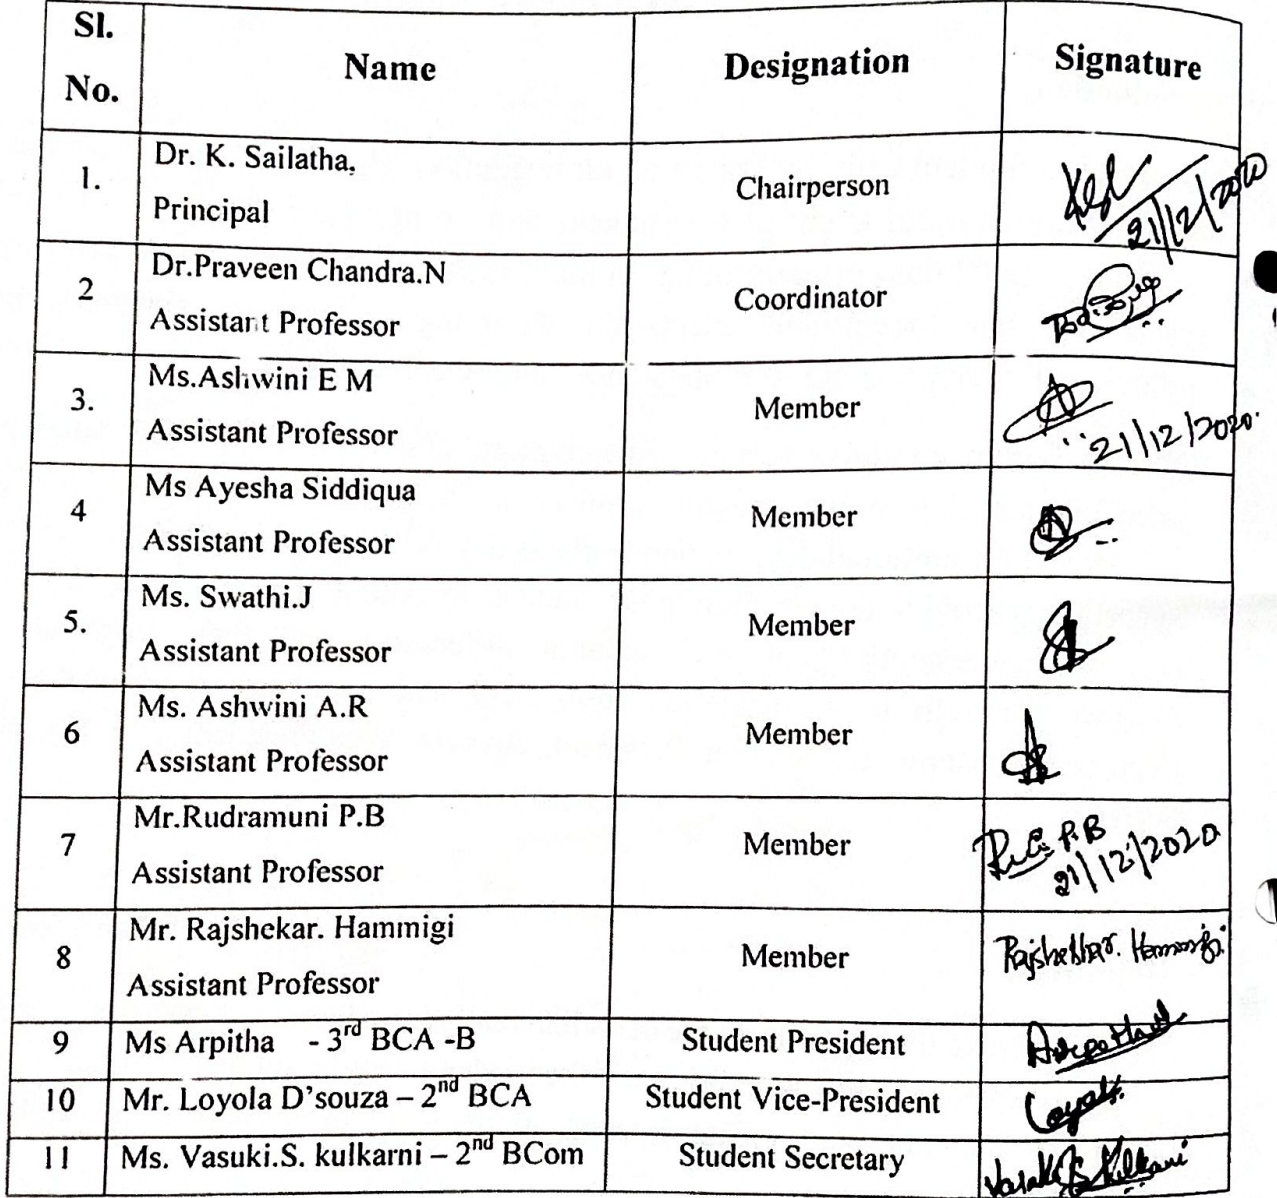 Sl.
No.
Name
Designation
Signature
1.
Dr. K. Sailatha,
Principal
Chairperson
21/12/2020
2
Dr.Praveen Chandra.N
Assistant Professor
Coordinator
3.
Ms.Ashwini E M
Assistant Professor
Member
21/12/2020
4
Ms Ayesha Siddiqua
Assistant Professor
Member
5.
Ms. Swathi.J
Assistant Professor
Member
6
Ms. Ashwini A.R
Assistant Professor
Member
7
Mr.Rudramuni P.B
Assistant Professor
Member
P.B
21/12/2020
8
Mr. Rajshekar. Hammigi
Assistant Professor
Member
Rajshekhar. Hammigi
9
Ms Arpitha - 3rd BCA -B
Student President
10
Mr. Loyola D'souza – 2nd BCA
Student Vice-President
Loyola
11
Ms. Vasuki.S. kulkarni – 2nd BCom
Student Secretary
Vasuki S Kulkarni